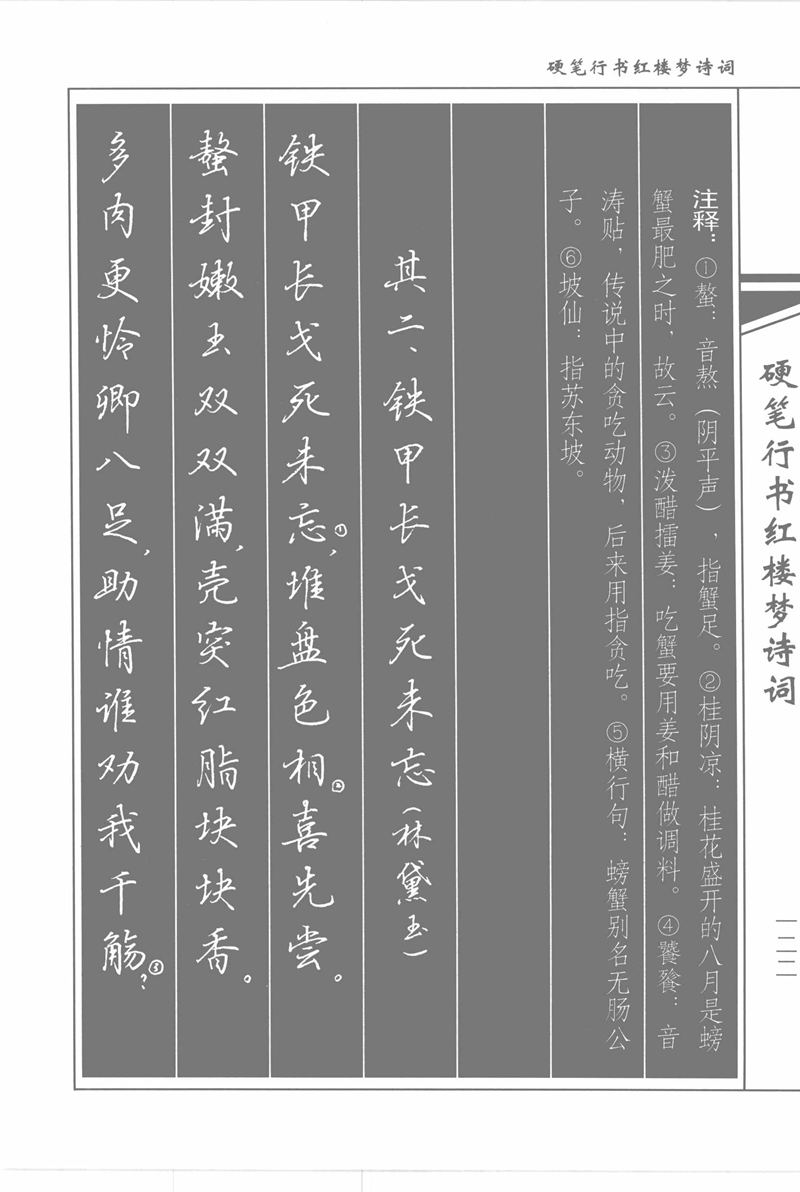 硬笔行书红楼梦诗词
注释：①螯：音熬（阴平声），指蟹足。②桂阴凉：桂花盛开的八月是螃
蟹最肥之时，故云。③泼醋擂姜：吃蟹要用姜和醋做调料。④饕餮：音
涛贴，传说中的贪吃动物，后来用指贪吃。⑤横行句：螃蟹别名无肠公
子。⑥坡仙：指苏东坡。
其二、铁甲长戈死未忘(林黛玉)
铁甲长戈死未忘①,堆盘色相②喜先尝。
螯封嫩玉双双满,壳突红脂块块香。
多肉更怜卿八足,助情谁劝我千觞③?
硬笔行书红楼梦诗词
一二二